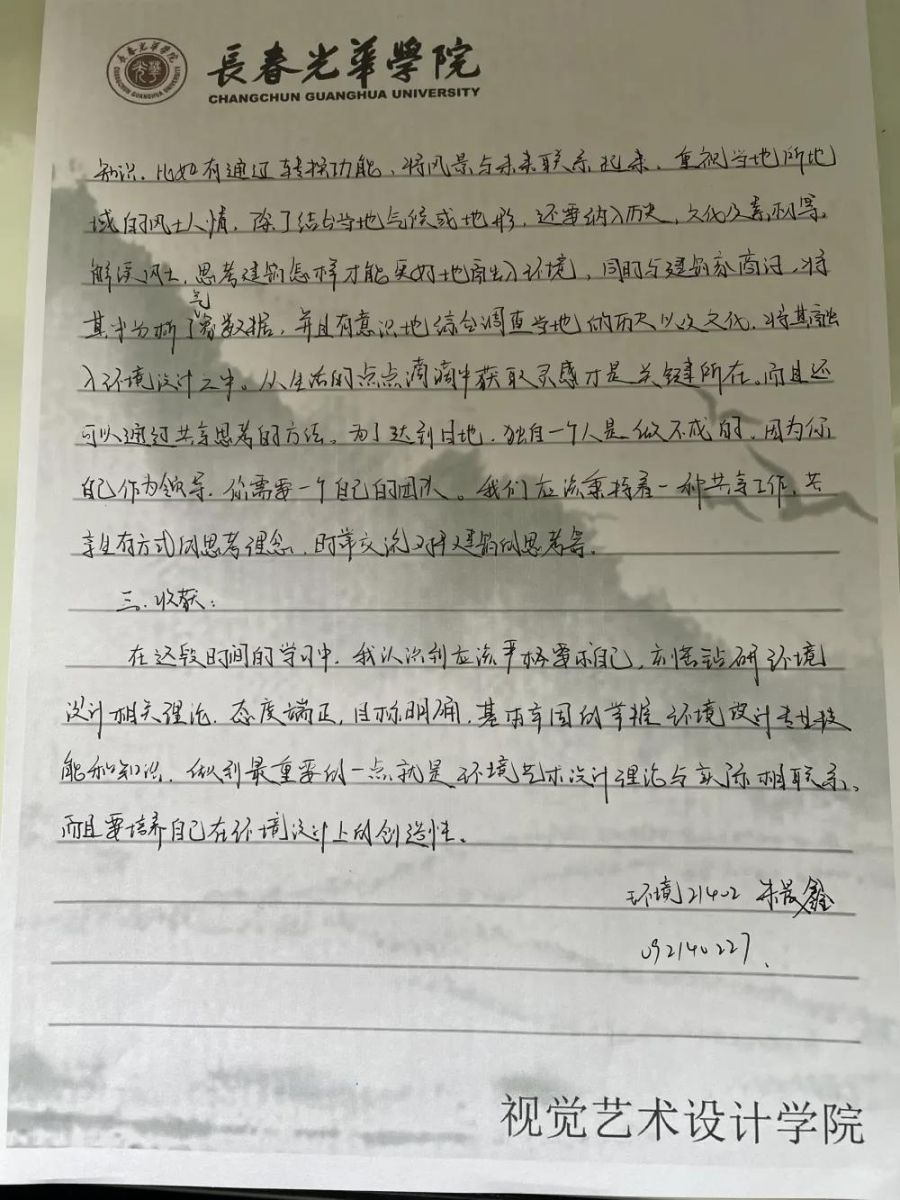 長春光華學院
CHANGCHUN GUANGHUA UNIVERSITY
知识。比如有通过转换功能，将风景与未来联系起来，重视当地所地
域的风土人情，除了结合当地气候或地形，还要纳入历史，文化及素材等，
解读风土，思考建筑怎样才能更好地融入环境，同时与建筑家商讨，将
其中分析了气象数据，并且有意识地综合调查当地的历史以及文化，将其融
入环境设计之中。从生活的点点滴滴中获取灵感才是关键所在，而且还
可以通过共享思考的方法。为了达到目地，独自一个人是做不成的，因为你
自己作为领导，你需要一个自己的团队。我们应该秉持着一种共享工作，共
享所有方式的思考理念，时常交流对建筑的思考等。
三、收获：
在这段时间的学习中，我认识到应该严格要求自己，刻苦钻研环境
设计相关理论，态度端正，目标明确，基本牢固的掌握环境设计专业技
能和知识，做到最重要的一点就是环境艺术设计理论与实际相联系。
而且要培养自己在环境设计上的创造性。
环境21402 朱晨鑫
092140227
视觉艺术设计学院